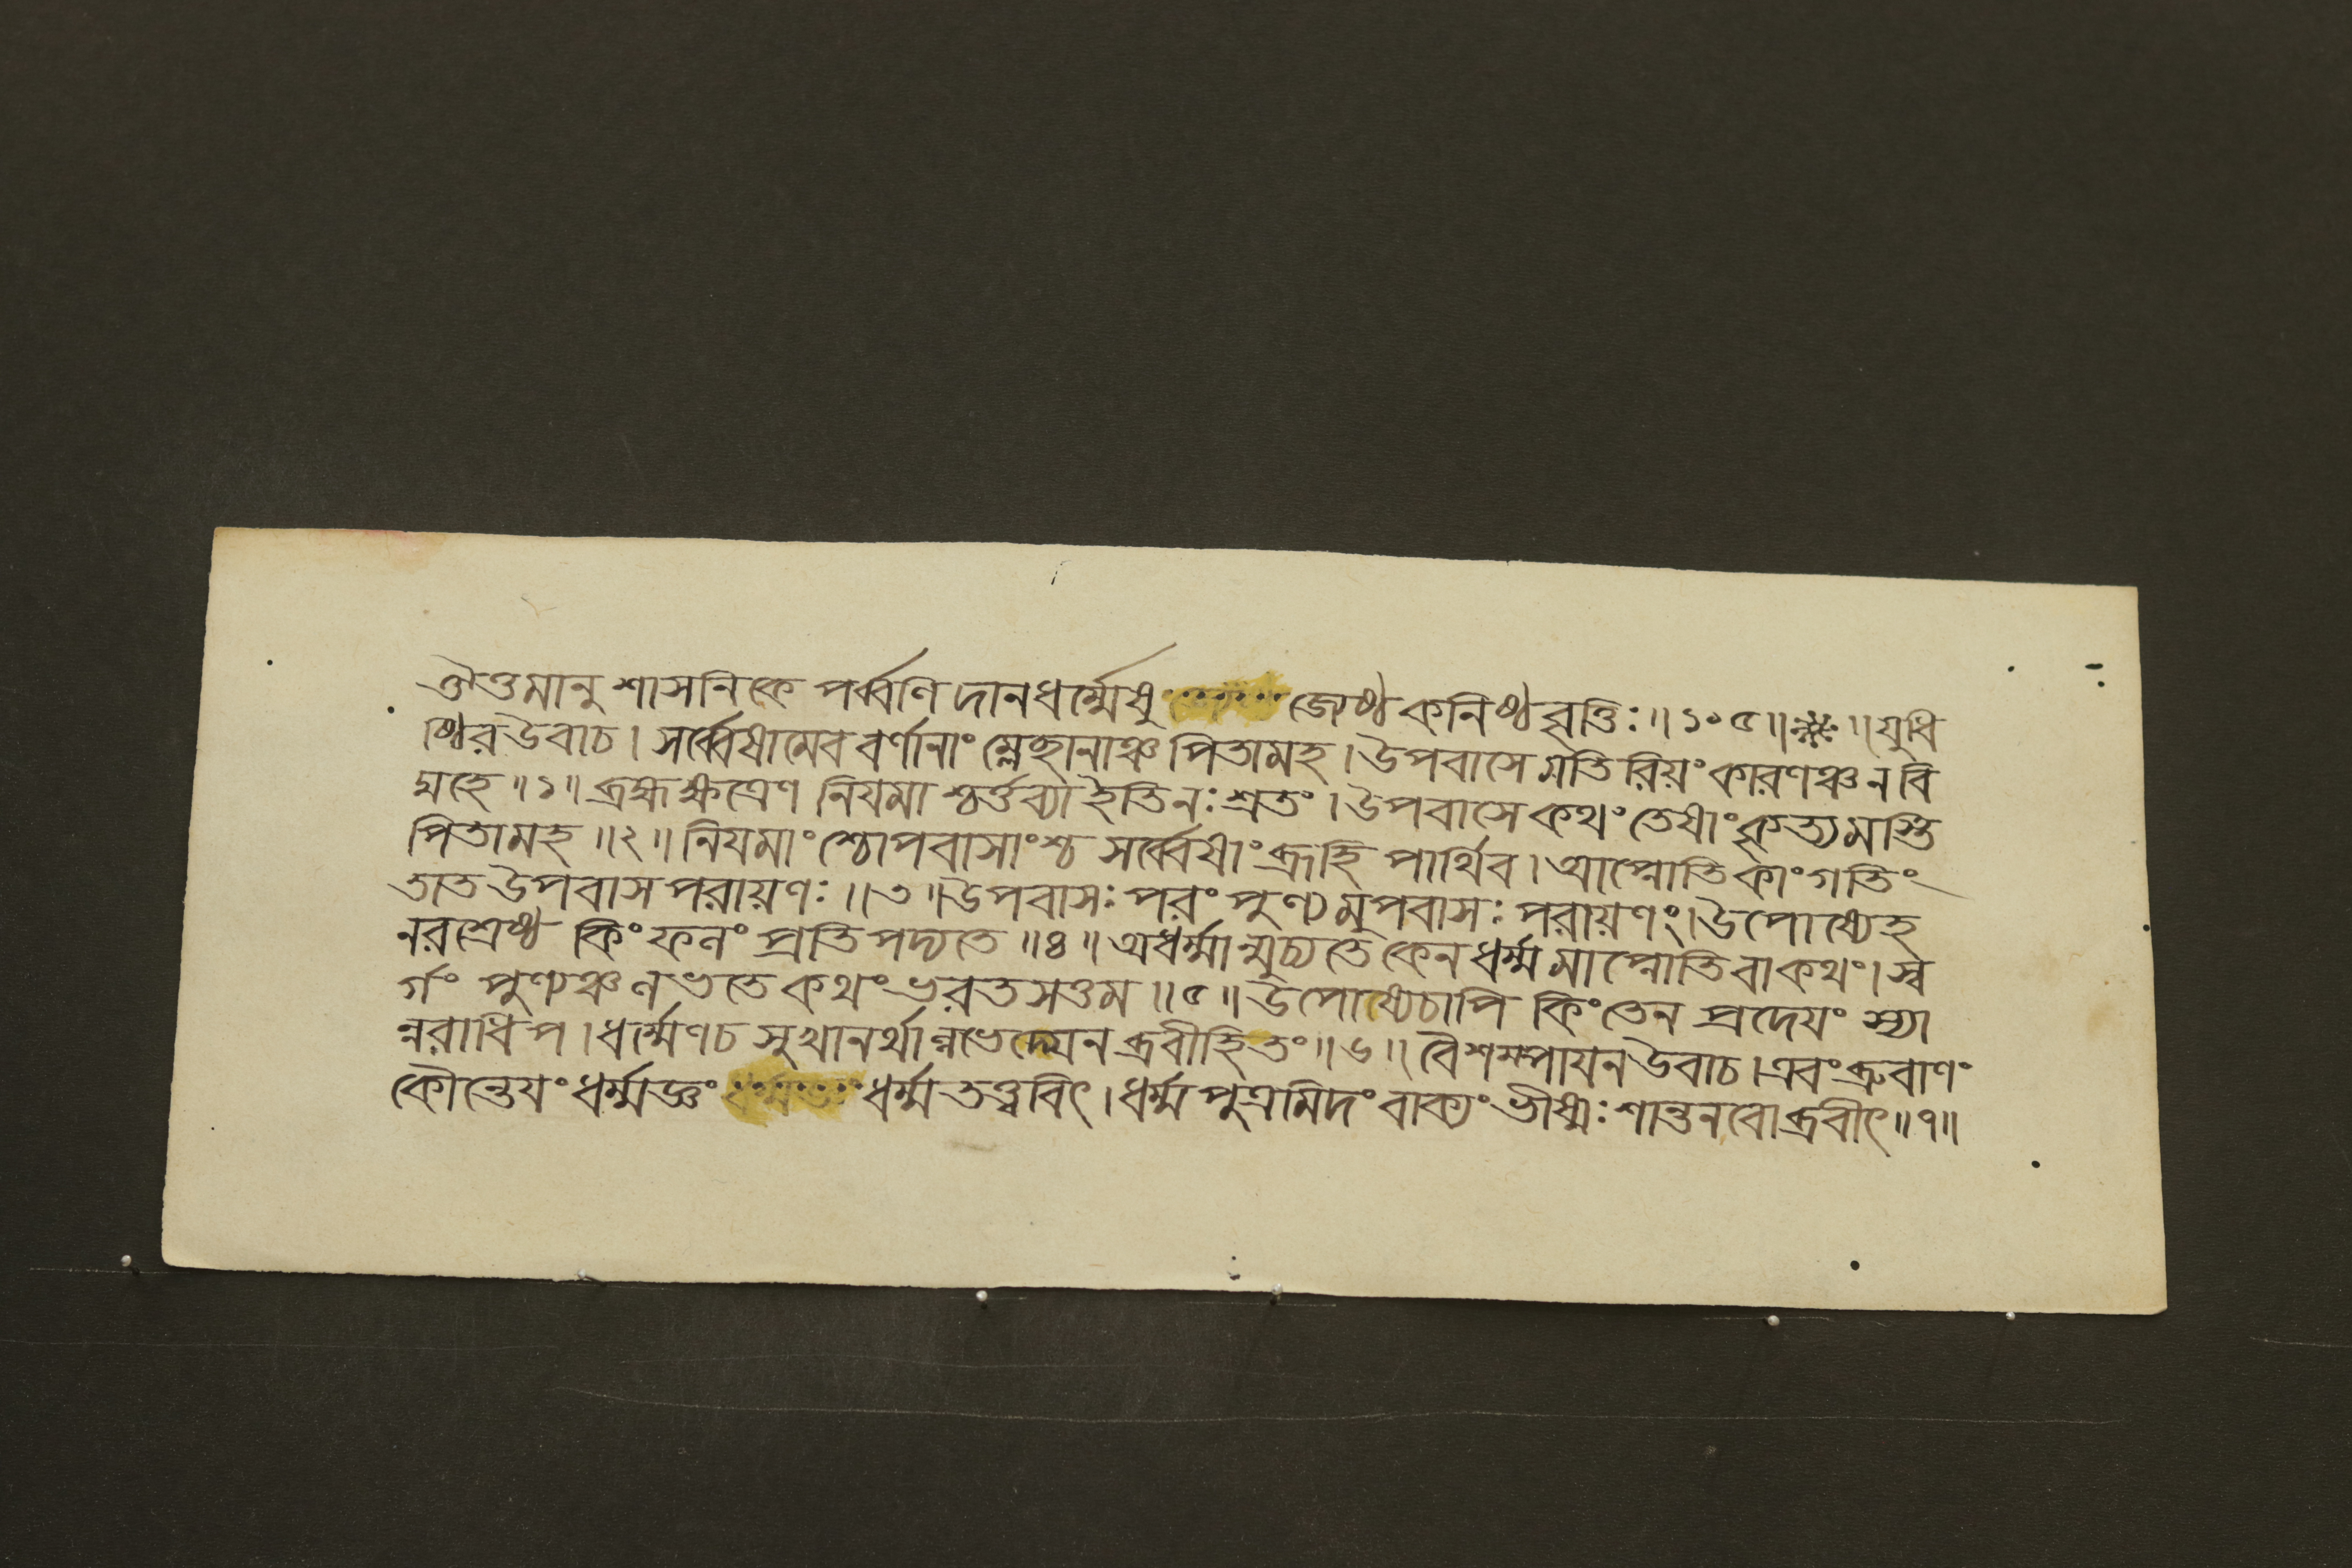 ঐত্তমানুশাসনিকে পর্ব্বণি দানধর্ম্মেষু জ্যেষ্ঠ কনিষ্ঠ বৃত্তিঃ॥১০৫॥ ॥যুধি
ষ্ঠির উবাচ। সর্ব্বেষামেব বর্ণানাং ম্লেছানাঞ্চ পিতামহ। উপবাসে মতিরিয়ং কারণঞ্চ ন বি
দ্মহে॥১॥ ব্রহ্মক্ষত্রেণ নিযমাশ্চর্ত্তব্যা ইতি নঃ শ্রতং। উপবাসে কথং তেষাং কৃত্যমস্তি
পিতামহ॥২॥ নিযমাংশ্চোপবাসাংশ্চ সর্ব্বেষাং ব্রূহি পার্থিব। আপ্নোতি কাং গতিং
তাত উপবাসপরায়ণঃ॥৩॥ উপবাসঃ পরং পুণ্যমুপবাসঃ পরায়ণং। উপোষ্যেহ
নরশ্রেষ্ঠ কিং ফলং প্রতিপদ্যতে॥৪॥ অধর্ম্মান্মুচ্যতে কেন ধর্ম্মমাপ্নোতি বা কথং। স্ব
র্গং পুণ্যঞ্চ লভতে কথং ভরতসত্তম॥৫॥ উপোষ্যেচাপি কিং তেন প্রদেযং স্যা
ন্নরাধিপ। ধর্ম্মেণ চ সুখানর্থান্নভেদ্যেন ব্রবীহি তং॥৬॥ বৈশম্পাযন উবাচ। এবং ব্রুবাণং
কৌন্তেযং ধর্ম্মজ্ঞং ধর্ম্মতত্ত্ববিৎ। ধর্ম্মপুত্রমিদং বাক্যং ভীষ্মঃ শান্তনবোব্রবীৎ॥৭॥